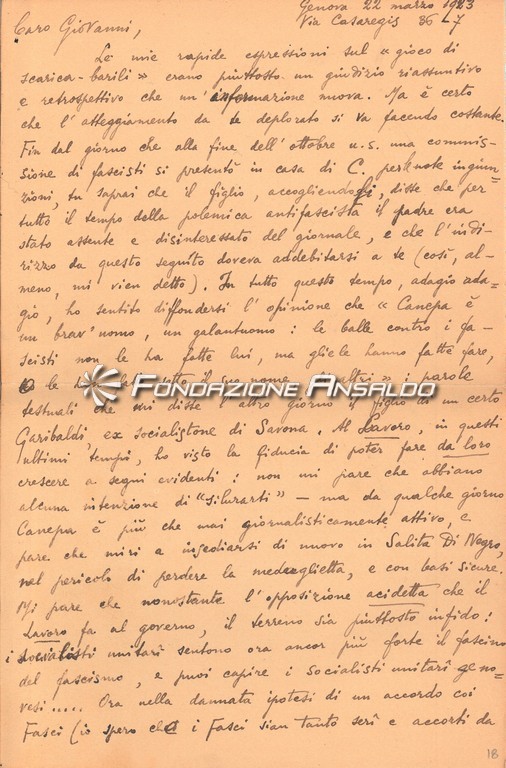 Genova 22 marzo 1923
Via Casaregis 36 - 7
Caro Giovanni,
Le mie rapide espressioni sul "gioco di
scarica-barili" erano piuttosto un giudizio riassuntivo
e retrospettivo che un'informazione nuova. Ma è certo
che l'atteggiamento da te deplorato si va facendo costante.
Fin dal giorno che alla fine dell'ottobre u.s. una commis-
sione di fascisti si presentò in casa di C. per le note ingiun-
zioni, tu saprai che il figlio, accogliendoli, disse che per
tutto il tempo della polemica antifascista il padre era
stato assente e disinteressato del giornale, e che l'indi-
rizzo da questo seguito doveva addebitarsi a te (così, al-
meno, mi vien detto). In tutto questo tempo, adagio ada-
gio, ho sentito diffondersi l'opinione che "Canepa è
un brav'uomo, un galantuomo: le balle contro i fa-
scisti non le ha fatte lui, ma gliele hanno fatte fare,
o le il suo nome parole
FONDAZIONE ANSALDO
testuali che mi disse l'altro giorno il figlio di un certo
Garibaldi, ex socialistone di Savona. Al Lavoro, in questi
ultimi tempi, ho visto la fiducia di poter fare da loro
crescere a segni evidenti: non mi pare che abbiano
alcuna intenzione di "silurarti" — ma da qualche giorno
Canepa è più che mai giornalisticamente attivo, e
pare che miri a insediarsi di nuovo in Salita Di Negro,
nel pericolo di perdere la medaglietta, e con basi sicure.
Mi pare che nonostante l'opposizione acidetta che il
Lavoro fa al governo, il terreno sia piuttosto infido:
i socialisti unitarî sentono ora ancor più forte il fascino
del fascismo, e puoi capire i Socialisti unitarî geno-
vesi..... Ora nella dannata ipotesi di un accordo coi
Fasci (io spero che i Fasci sian tanto serî e accorti da
18